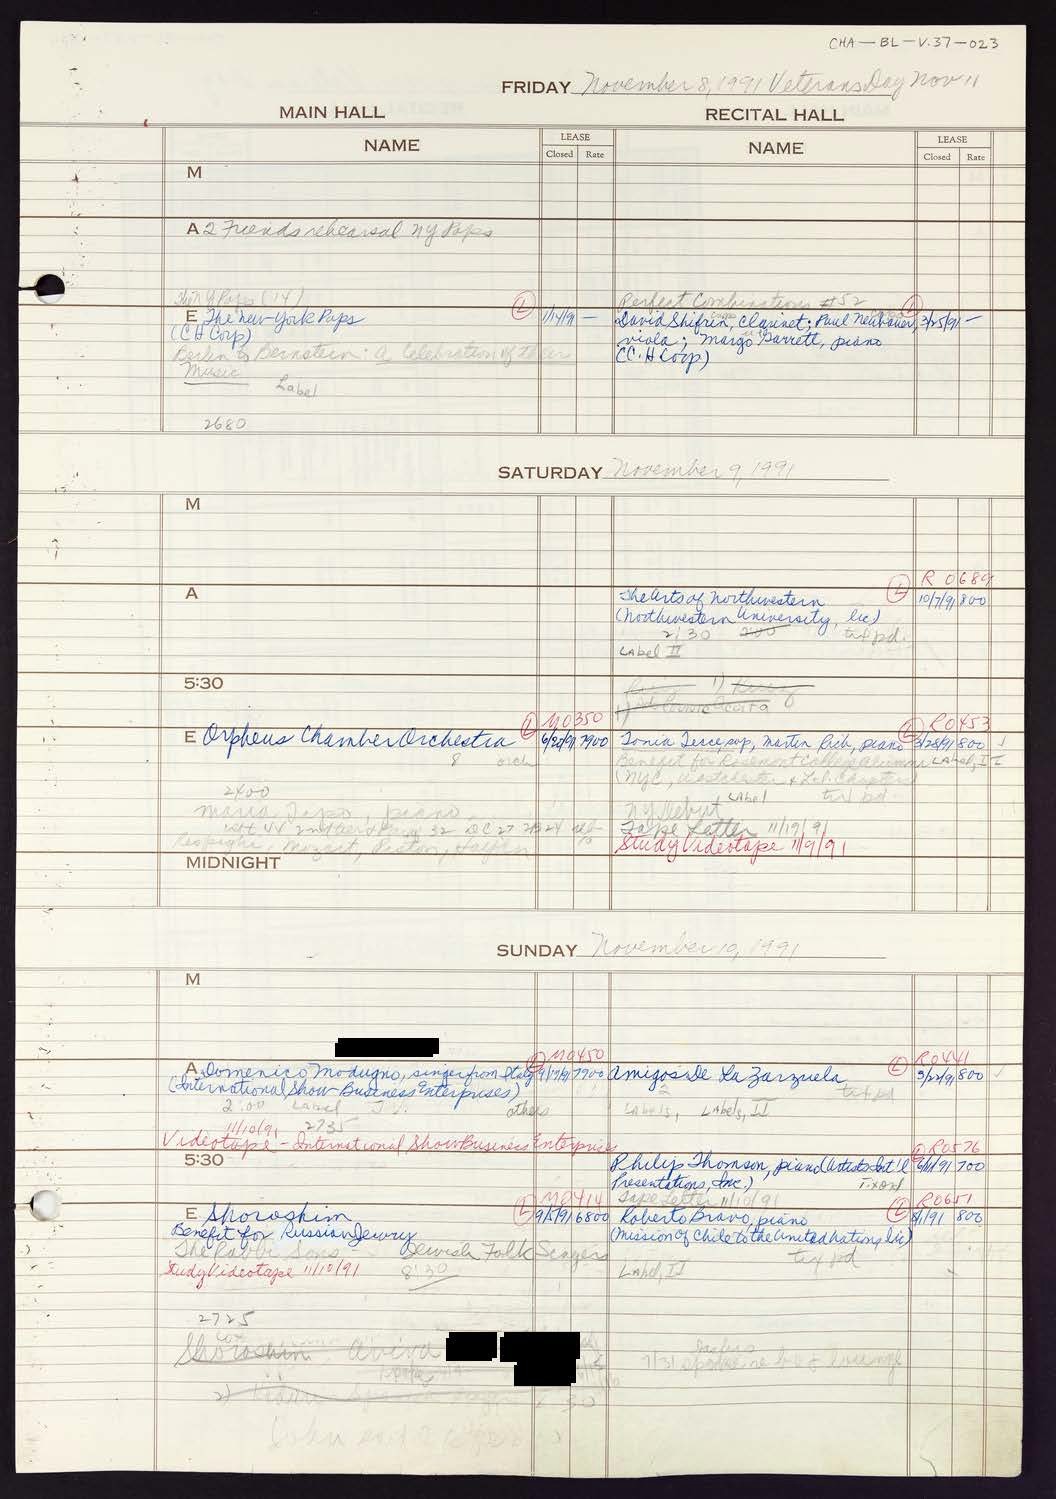 CHA-BL-V.37-023
FRIDAY November 8, 1991 Veterans Day Nov 11
MAIN HALL
RECITAL HALL
NAME
LEASE
Closed Rate
NAME
LEASE
Closed Rate
M
A 2 Friends rehearsal NY Pops
The NY Pops (14)
E The New York Pops
L 1/14/91 —
(CH Corp)
Berlin & Bernstein: A Celebration of their
Music
Label
2680
Perfect Combinations #52
L
David Shifrin, Clarinet; Paul Neubauer, 3/25/91 —
viola; Margo Garrett, piano
(C.H Corp)
SATURDAY November 9, 1991
M
A
L R 0689
The Arts of Northwestern 10/7/91 800
(Northwestern University, lic)
2:30 2:00 tix pd.
Label II
5:30
L M0350
E Orpheus Chamber Orchestra 6/20/91 7900
8 orch
2800
Maria Tipo, piano
Respighi, Mozart, Piston, Haydn
L R0453
Tonia Tecce, sop, Martin Rich, piano 3/28/91 800
Benefit for Rosemont College Alumnae Label, II
(NYC, Westchester & L.I. Chapters)
Label tix pd.
NY Debut
Tape Letter 11/19/91
Study Videotape 11/9/91
MIDNIGHT
SUNDAY November 10, 1991
M
L M0450
A Domenico Modugno, singer from Italy 9/17/91 7900
(International Show Business Enterprises)
2:00 Label T.V. others
11/10/91 2735
Videotape - International Show Business Enterprises
L R0441
Amigos De La Zarzuela 3/22/91 800
2 tix pd
Labels, Labels, II
5:30
L R0576
Philip Thomson, piano (Artists Int'l 6/11/91 700
Presentations, Inc.) Tix pd
Tape Letter 11/10/91
L M0414
E Shoroshim 9/5/91 6800
Benefit for Russian Jewry
The Rabbi Sons - Jewish Folk Singers
Study Videotape 11/10/91 8:30
2725
Shoroshim Aviva
L R0651
Roberto Bravo, piano 8/1/91 800
(Mission of Chile to the United Nations, lic)
tix pd
Label, II
7/31 spoke re box lounge